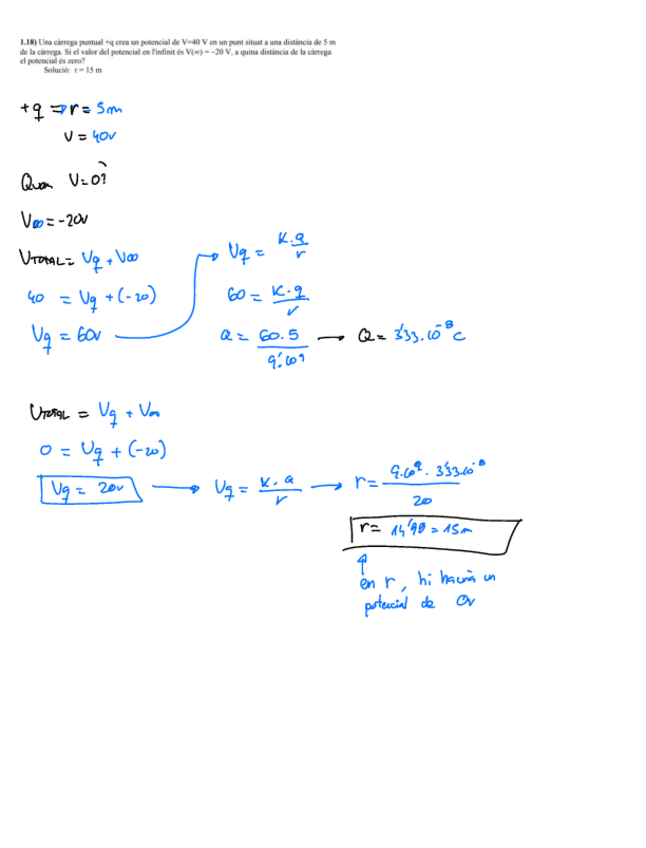 1.18) Una càrrega puntual +q crea un potencial de V=40 V en un punt situat a una distància de 5 m
de la càrrega. Si el valor del potencial en l'infinit és V(∞) = −20 V, a quina distància de la càrrega
el potencial és zero?
Solució: r = 15 m
+q ⇒ r = 5m
V = 40v
Quan V=0?
V∞ = -20v
VTOTAL = Vq + V∞
40 = Vq + (-20)
Vq = 60v
Vq = K·Q/r
60 = K·q/r
Q = 60·5/9'10⁹ → Q = 3'33·10⁻⁸ C
VTOTAL = Vq + V∞
0 = Vq + (-20)
Vq = 20v → Vq = K·Q/r → r = 9·10⁹ · 3'33·10⁻⁸/20
r = 14'98 = 15m
en r, hi hauria un
potencial de 0v